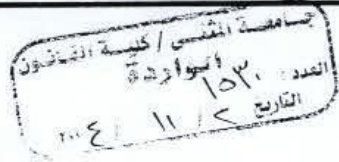 جامعة المثنى / كلية القانون
الواردة
العدد : ١٥٣٠
التاريخ ٢ / ١١ / ٢٠٠٤